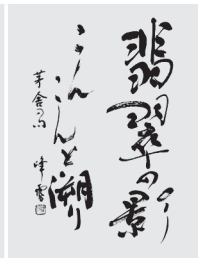 翡翠の影
こんこんと溯り
茅舎の句